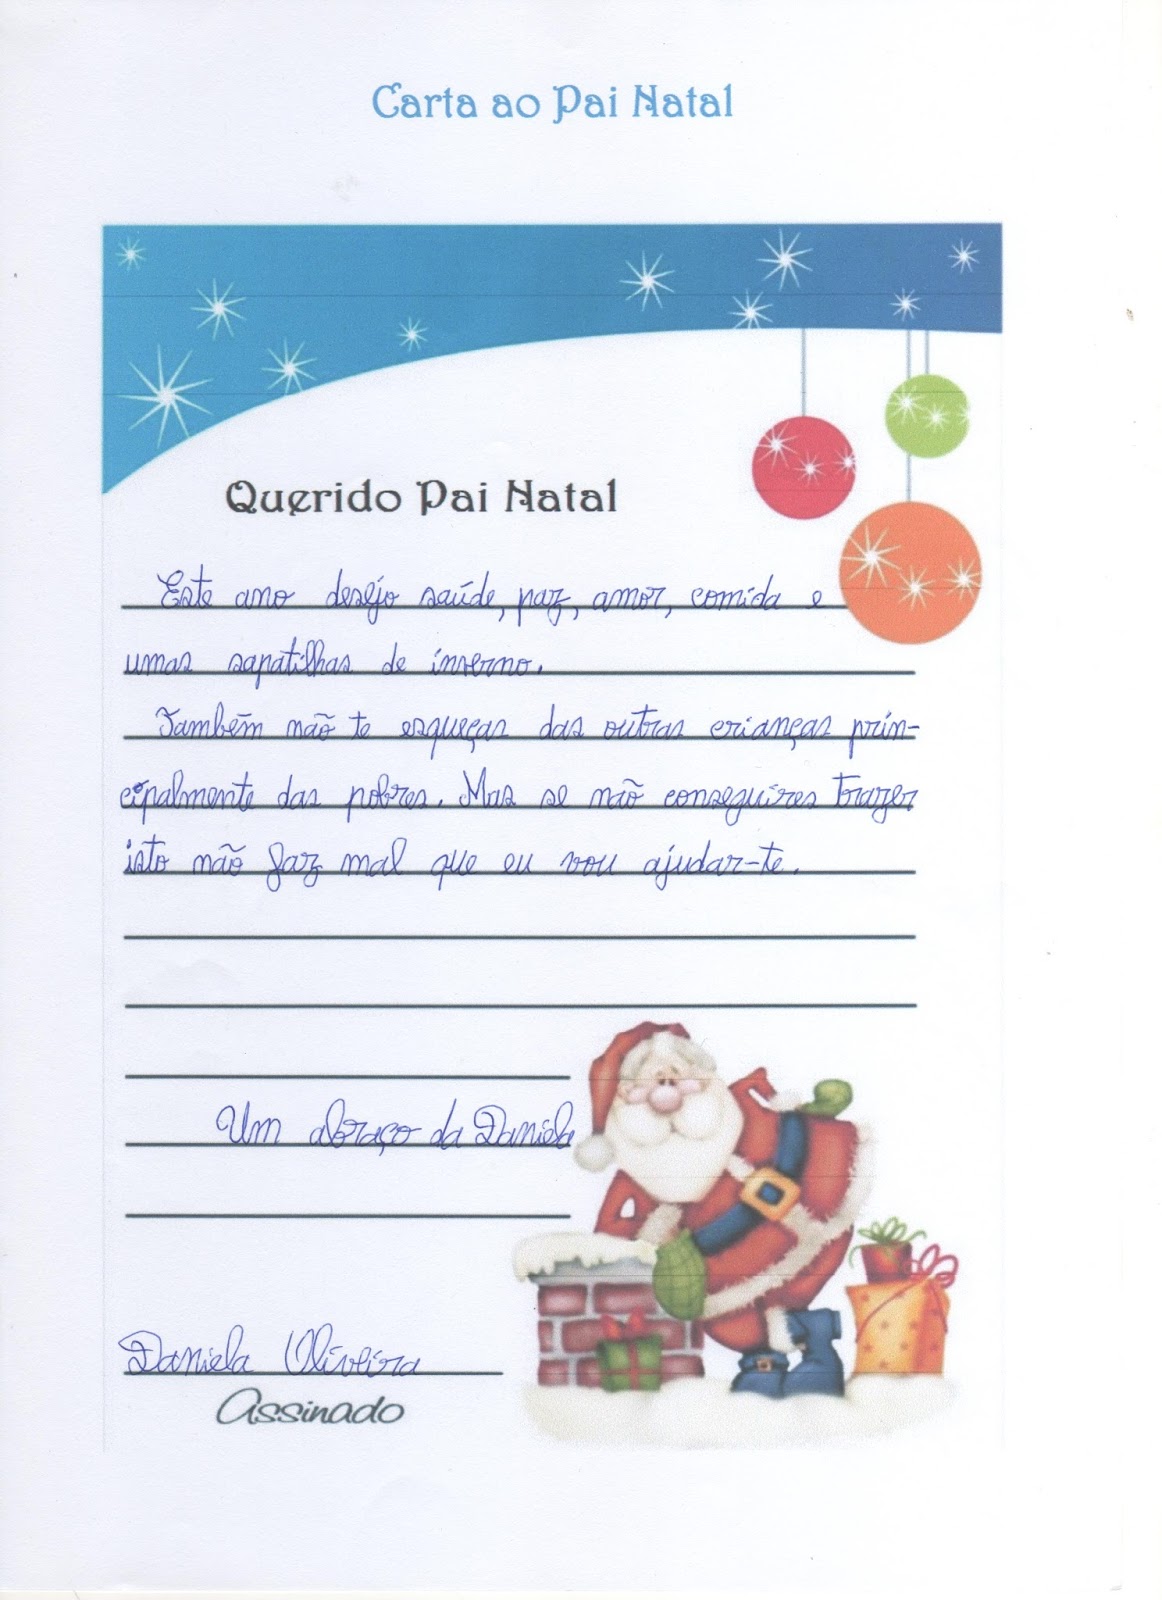 Carta ao Pai Natal
Querido Pai Natal
Este ano desejo saúde, paz, amor, comida e
umas sapatilhas de inverno.
Também não te esqueças das outras crianças prin-
cipalmente das pobres. Mas se não conseguires trazer
isto não faz mal que eu vou ajudar-te.
Um abraço da Daniela
Daniela Oliveira
Assinado